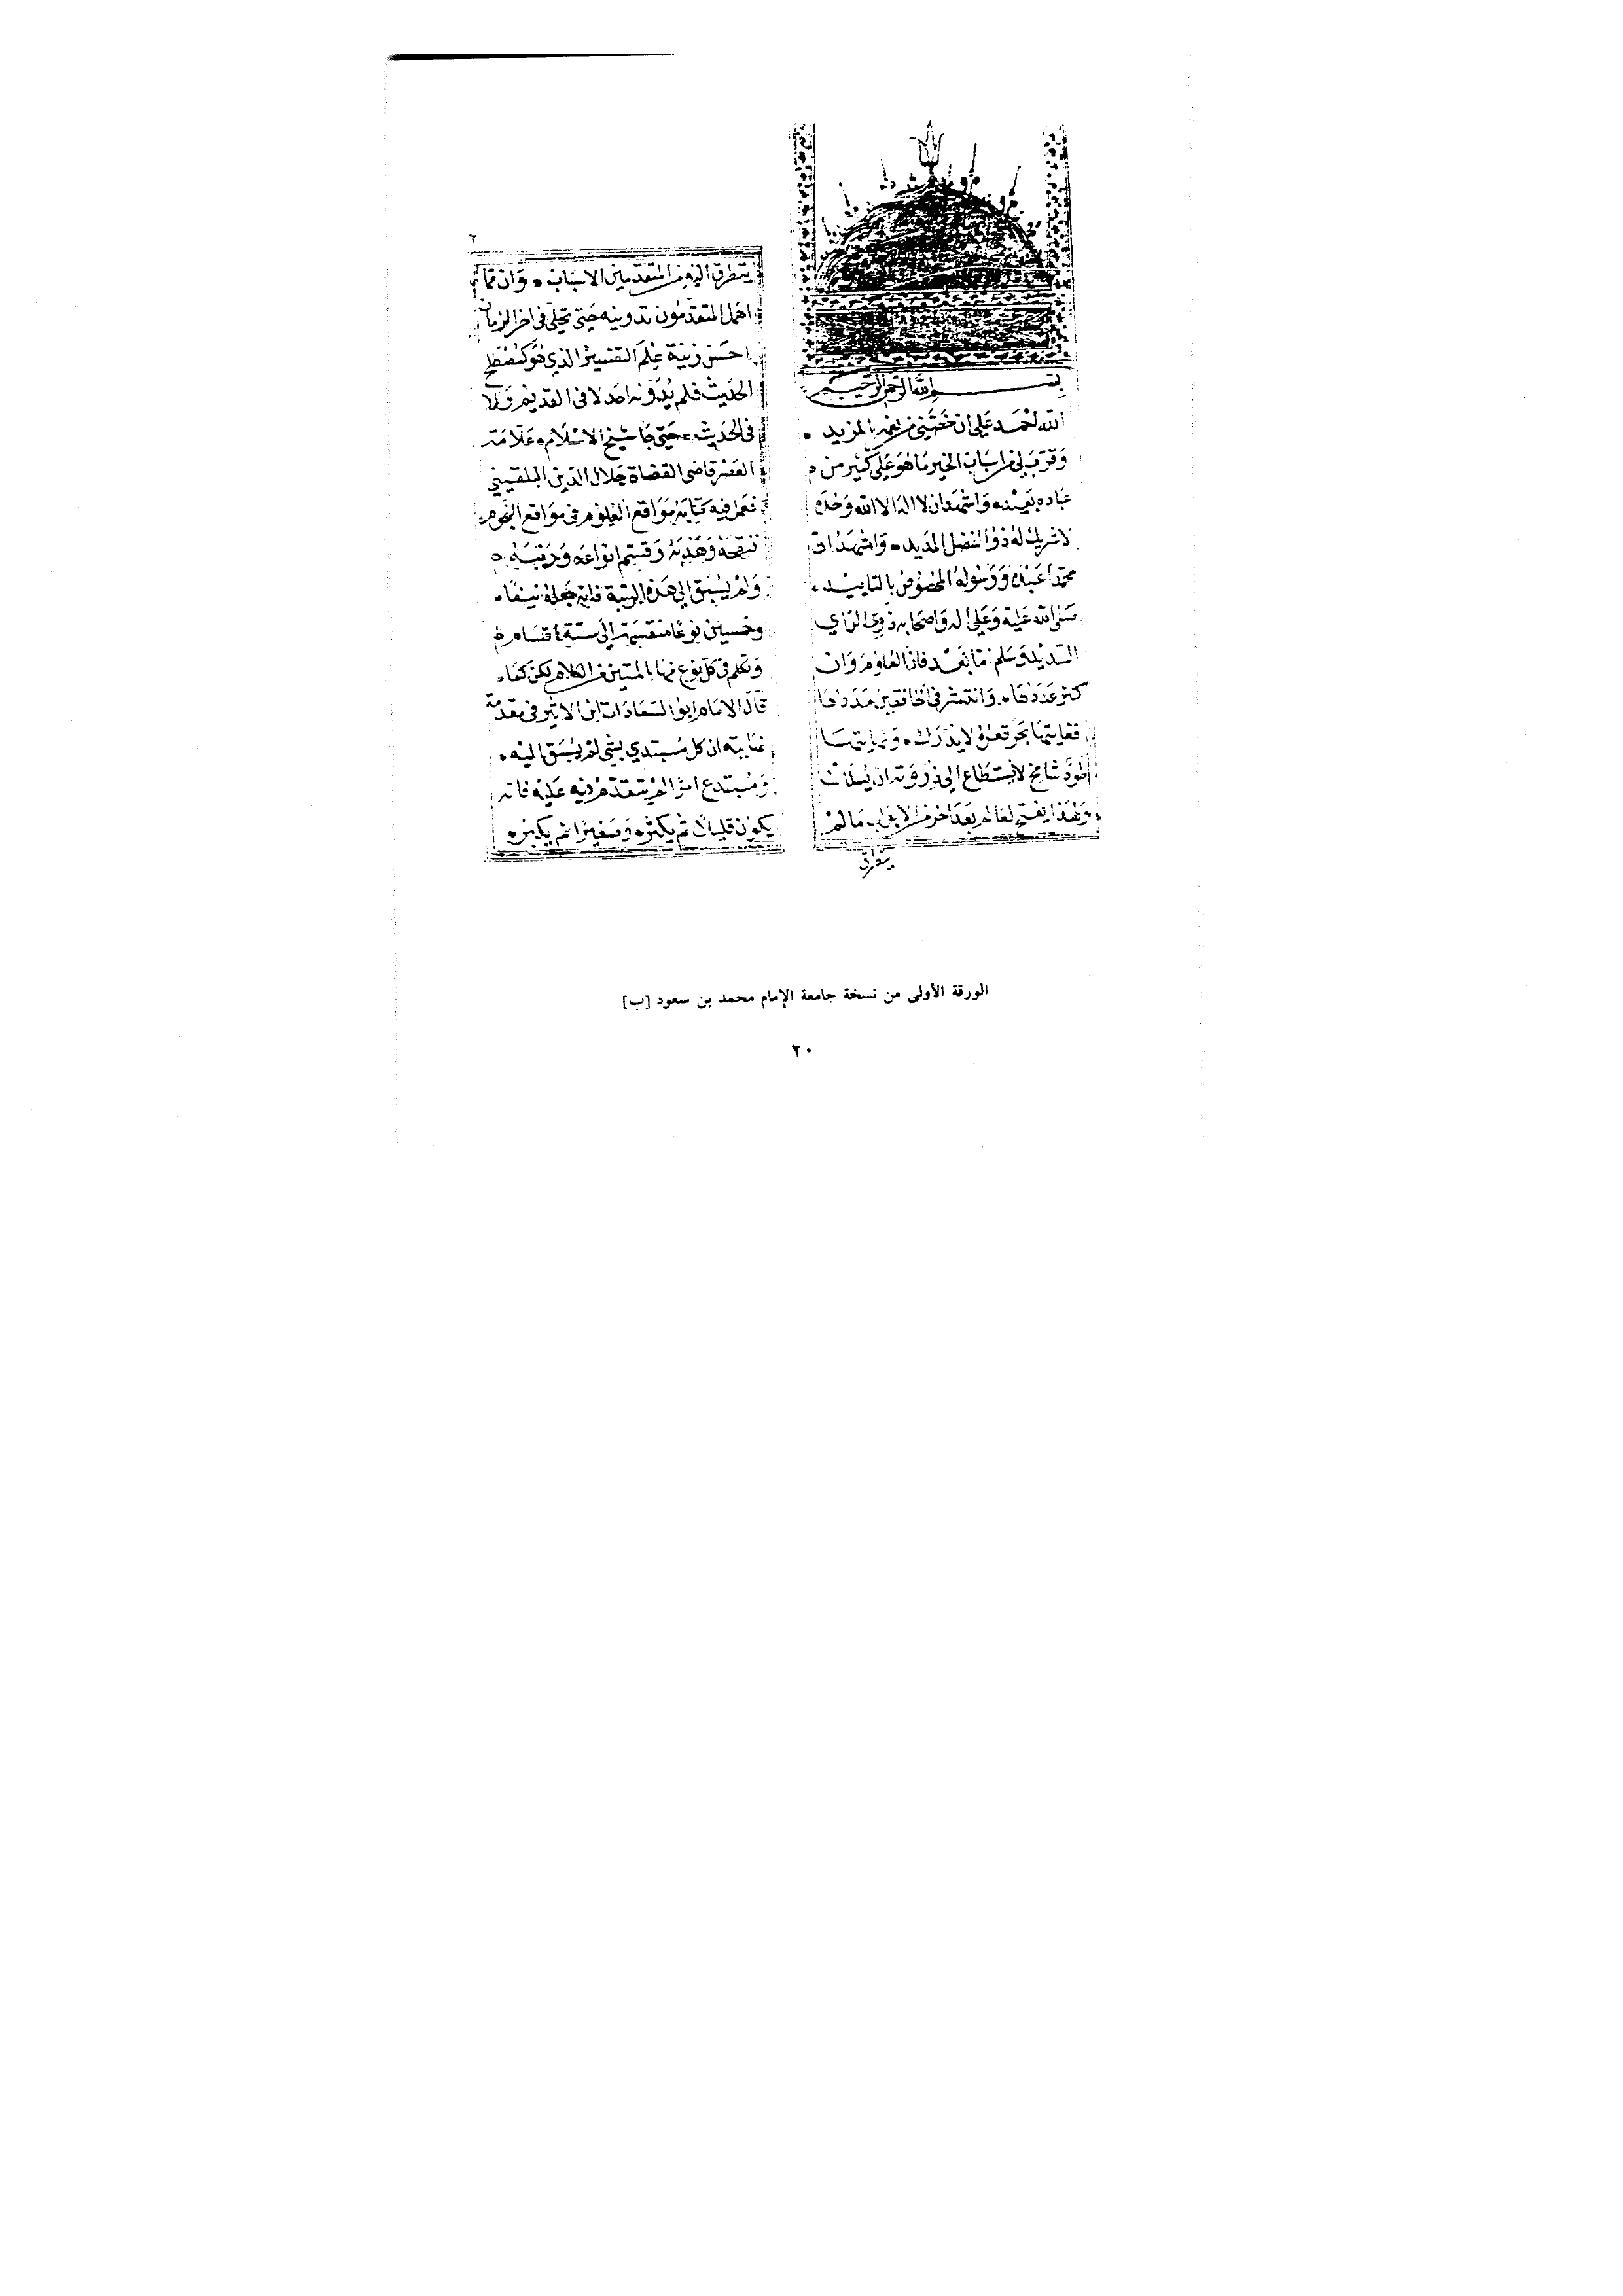 بسم الله الرحمن الرحيم
الله احمد على ان خصني من نعمه المزيد
وقرب لي من اسباب الخير ما هو على كثير من
عباده بعيد واشهد ان لا اله الا الله وحده
لا شريك له ذو الفضل المديد واشهد ان
محمدا عبده ورسوله المخصوص بالتاييد
صلى الله عليه وعلى اله واصحابه ذوي الراي
السديد وسلم اما بعد فان العلوم وان
كثر عددها وانتشر في الخافقين مددها
فغايتها بحر قعره لا يدرك ونهايتها
طود شامخ لا يستطاع الى ذروته ان يسلك
ولهذا يفتح لعالم بعد اخر من الابواب ما لم
يتطرق
٢
يتطرق اليه من المتقدمين الاسباب وان مما
اهمل المتقدمون تدوينه حتى تحلى في اخر الزمان
باحسن زينة علم التفسير الذي هو كمصطلح
الحديث فلم يدونه احد لا في القديم ولا
في الحديث حتى جا شيخ الاسلام علامة
العصر قاضي القضاة جلال الدين البلقيني
فعمل فيه كتابه مواقع العلوم في مواقع النجوم
فنقحه وهذبه وقسم انواعه ورتبه
ولم يسبق الى هذه الرتبة فانه جعله نيفا
وخمسين نوعا منقسمة الى ستة اقسام
وتكلم في كل نوع منها بالمتين من الكلام لكن كما
قال الامام ابو السعادات ابن الاثير في مقدمة
نهايته ان كل مبتدي بشي لم يسبق اليه
ومبتدع امرا لم يتقدم فيه عليه فانه
يكون قليلا ثم يكثر وصغيرا ثم يكبر
الورقة الأولى من نسخة جامعة الإمام محمد بن سعود [ب]
٢٠